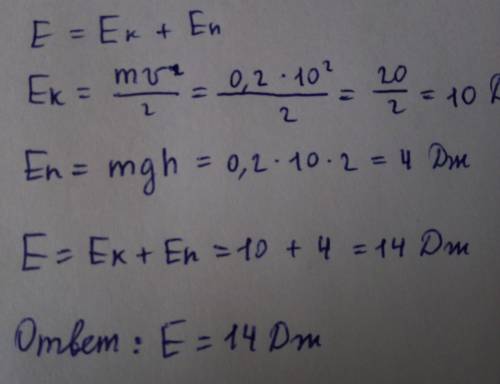 E = Eк + Eп
Eк = mv²/2 = 0,2 · 10²/2 = 20/2 = 10 Д
Eп = mgh = 0,2 · 10 · 2 = 4 Дж
E = Eк + Eп = 10 + 4 = 14 Дж
Ответ : E = 14 Дж